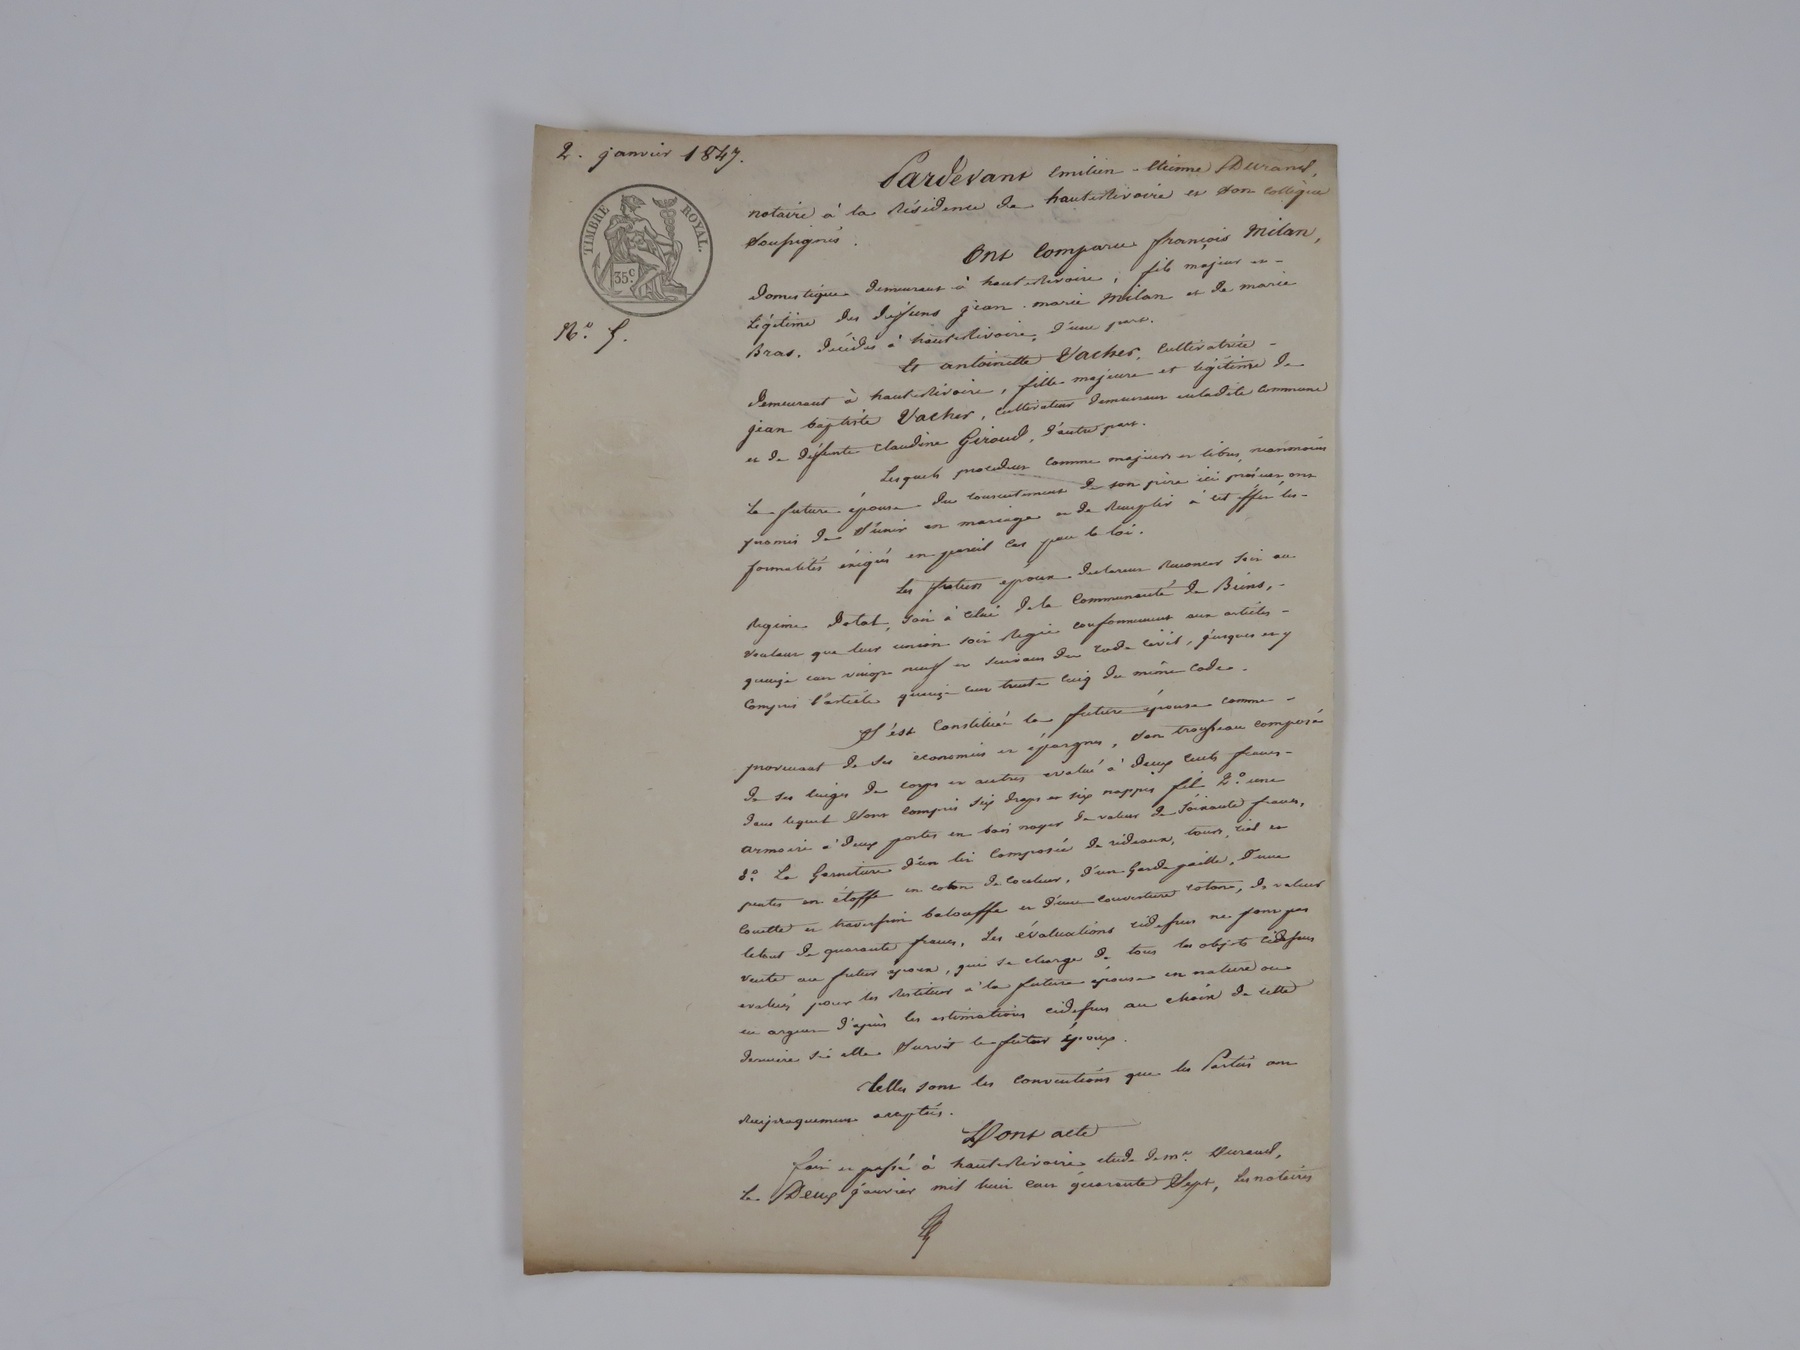 2. janvier 1847.
TIMBRE ROYAL.
35c.
N.° 5.
Pardevant emilien - Etienne Durand,
notaire à la Résidence de haute Rivoire et son collègue
Soussignés.
Ont Comparu françois Milan,
Domestique demeurant à haute Rivoire, fils majeur et -
Légitime des défunts jean marie Milan et de marie
Bras, décédés à haute Rivoire, d'une part.
Et antoinette Vacher, Cultivatrice -
demeurant à haute Rivoire, fille majeure et légitime de
jean baptiste Vacher, cultivateur demeurant en ladite commune
et de défunte claudine Giroud, d'autre part.
Lesquels procédant comme majeurs et libres, néanmoins
la future épouse du consentement de son père ici présent, ont
promis de s'unir en mariage et de Remplir à cet effet les -
formalités éxigées en pareil cas par la loi.
Les futurs époux déclarent Renoncer soit au
Régime Dotal, soit à celui de la Communauté de Biens, -
veulent que leur union soit Régie conformément aux articles -
quinze cent vingt neuf et suivans du Code Civil, jusques et y
Compris l'article quinze cent trente cinq du même Code.
S'est Constituée la future épouse comme -
provenant de ses économies et épargnes, son trousseau composé
de ses linges de corps et autres evalué à deux cents francs -
dans lequel sont compris six draps et six nappes fil 2.° une
armoire à deux portes en bois noyer de valeur de soixante francs,
3.° La Garniture d'un lit Composée de rideaux, tours, ciel et
pentes en étoffe en coton de couleur, d'un Garde paille, d'une
Couette et traversin balouffe et d'une couverture cotone, de valeur
le tout de quarante francs. Les évaluations cidessus ne font pas
vente au futur époux, qui se charge de tous les objets cidessus
evalués pour les Restituer à la future épouse en nature ou
en argent d'après les estimations cidessus au choix de cette
dernière si elle Survit le futur époux.
Telles sont les conventions que les Parties ont
Réciproquement acceptées.
Dont acte
fait et passé à haute Rivoire etude de m.e Durand,
Le Deux janvier mil huit cent quarante Sept, Les notaires